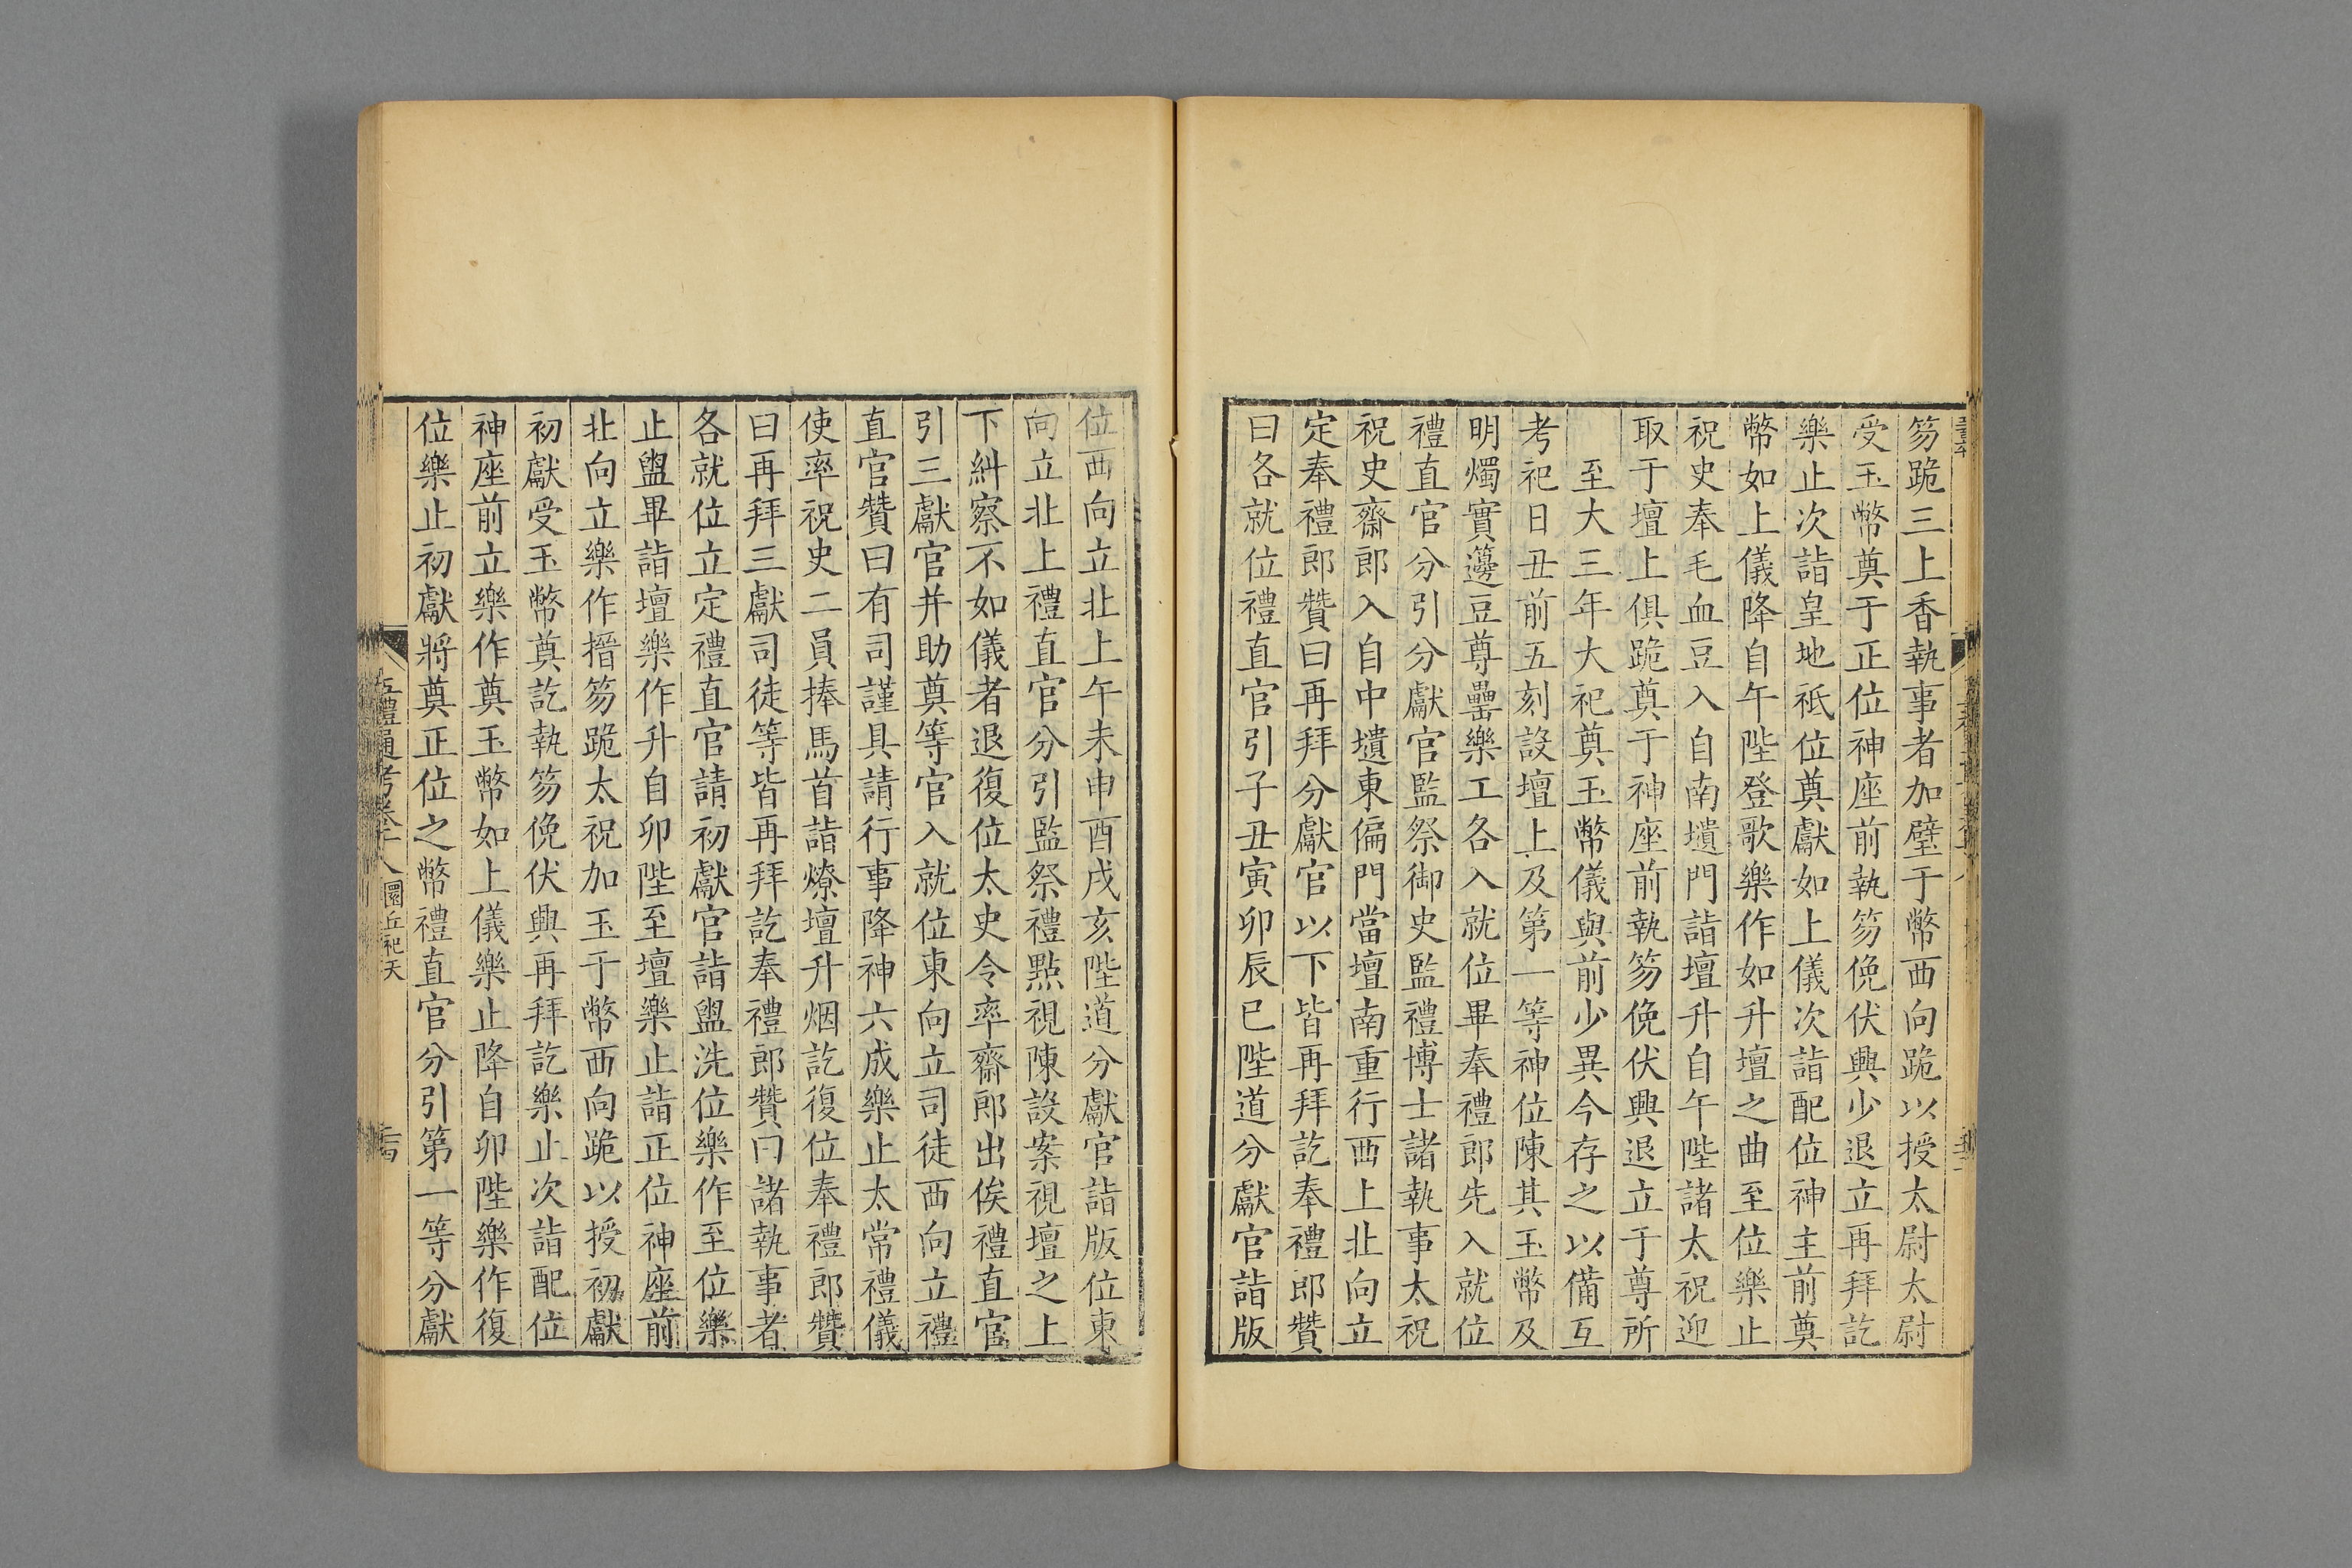 笏跪三上香執事者加璧于幣西向跪以授太尉太尉
受玉幣奠于正位神座前執笏俛伏興少退立再拜訖
樂止次詣皇地祗位奠獻如上儀次詣配位神主前奠
幣如上儀降自午陛登歌樂作如升壇之曲至位樂止
祝史奉毛血豆入自南壝門詣壇升自午陛諸太祝迎
取于壇上俱跪奠于神座前執笏俛伏興退立于尊所
至大三年大祀奠玉幣儀與前少異今存之以備互
考祀日丑前五刻設壇上及第一等神位陳其玉幣及
明燭實籩豆尊罍樂工各入就位畢奉禮郎先入就位
禮直官分引分獻官監祭御史監禮博士諸執事太祝
祝史齋郎入自中壝東偏門當壇南重行西上北向立
定奉禮郎贊曰再拜分獻官以下皆再拜訖奉禮郎贊
曰各就位禮直官引子丑寅卯辰巳陛道分獻官詣版
位西向立北上午未申酉戌亥陛道分獻官詣版位東
向立北上禮直官分引監祭禮點視陳設案視壇之上
下糾察不如儀者退復位太史令率齋郎出俟禮直官
引三獻官并助奠等官入就位東向立司徒西向立禮
直官贊曰有司謹具請行事降神六成樂止太常禮儀
使率祝史二員捧馬首詣燎壇升烟訖復位奉禮郎贊
曰再拜三獻司徒等皆再拜訖奉禮郎贊曰諸執事者
各就位立定禮直官請初獻官詣盥洗位樂作至位樂
止盥畢詣壇樂作升自卯陛至壇樂止詣正位神座前
北向立樂作搢笏跪太祝加玉于幣西向跪以授初獻
初獻受玉幣奠訖執笏俛伏興再拜訖樂止次詣配位
神座前立樂作奠玉幣如上儀樂止降自卯陛樂作復
位樂止初獻將奠正位之幣禮直官分引第一等分獻
五禮通考卷十八 圜丘祀天